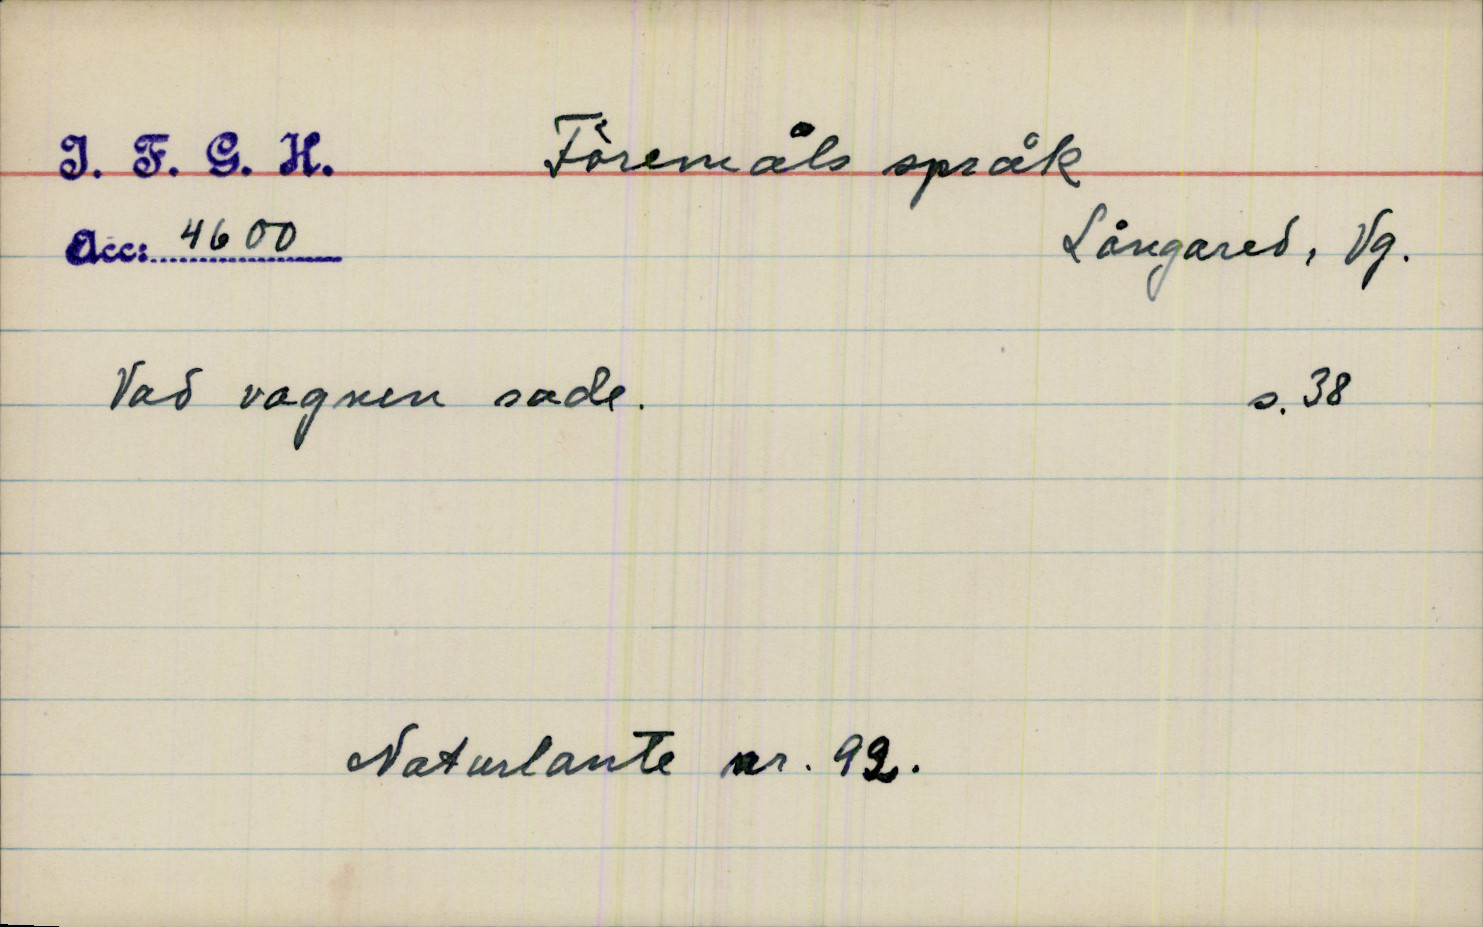 I. F. G. H. Föremåls språk
Acc: 4600 Långared, Vg.
Vad vagnen sade. s. 38
Naturlaute nr. 92.